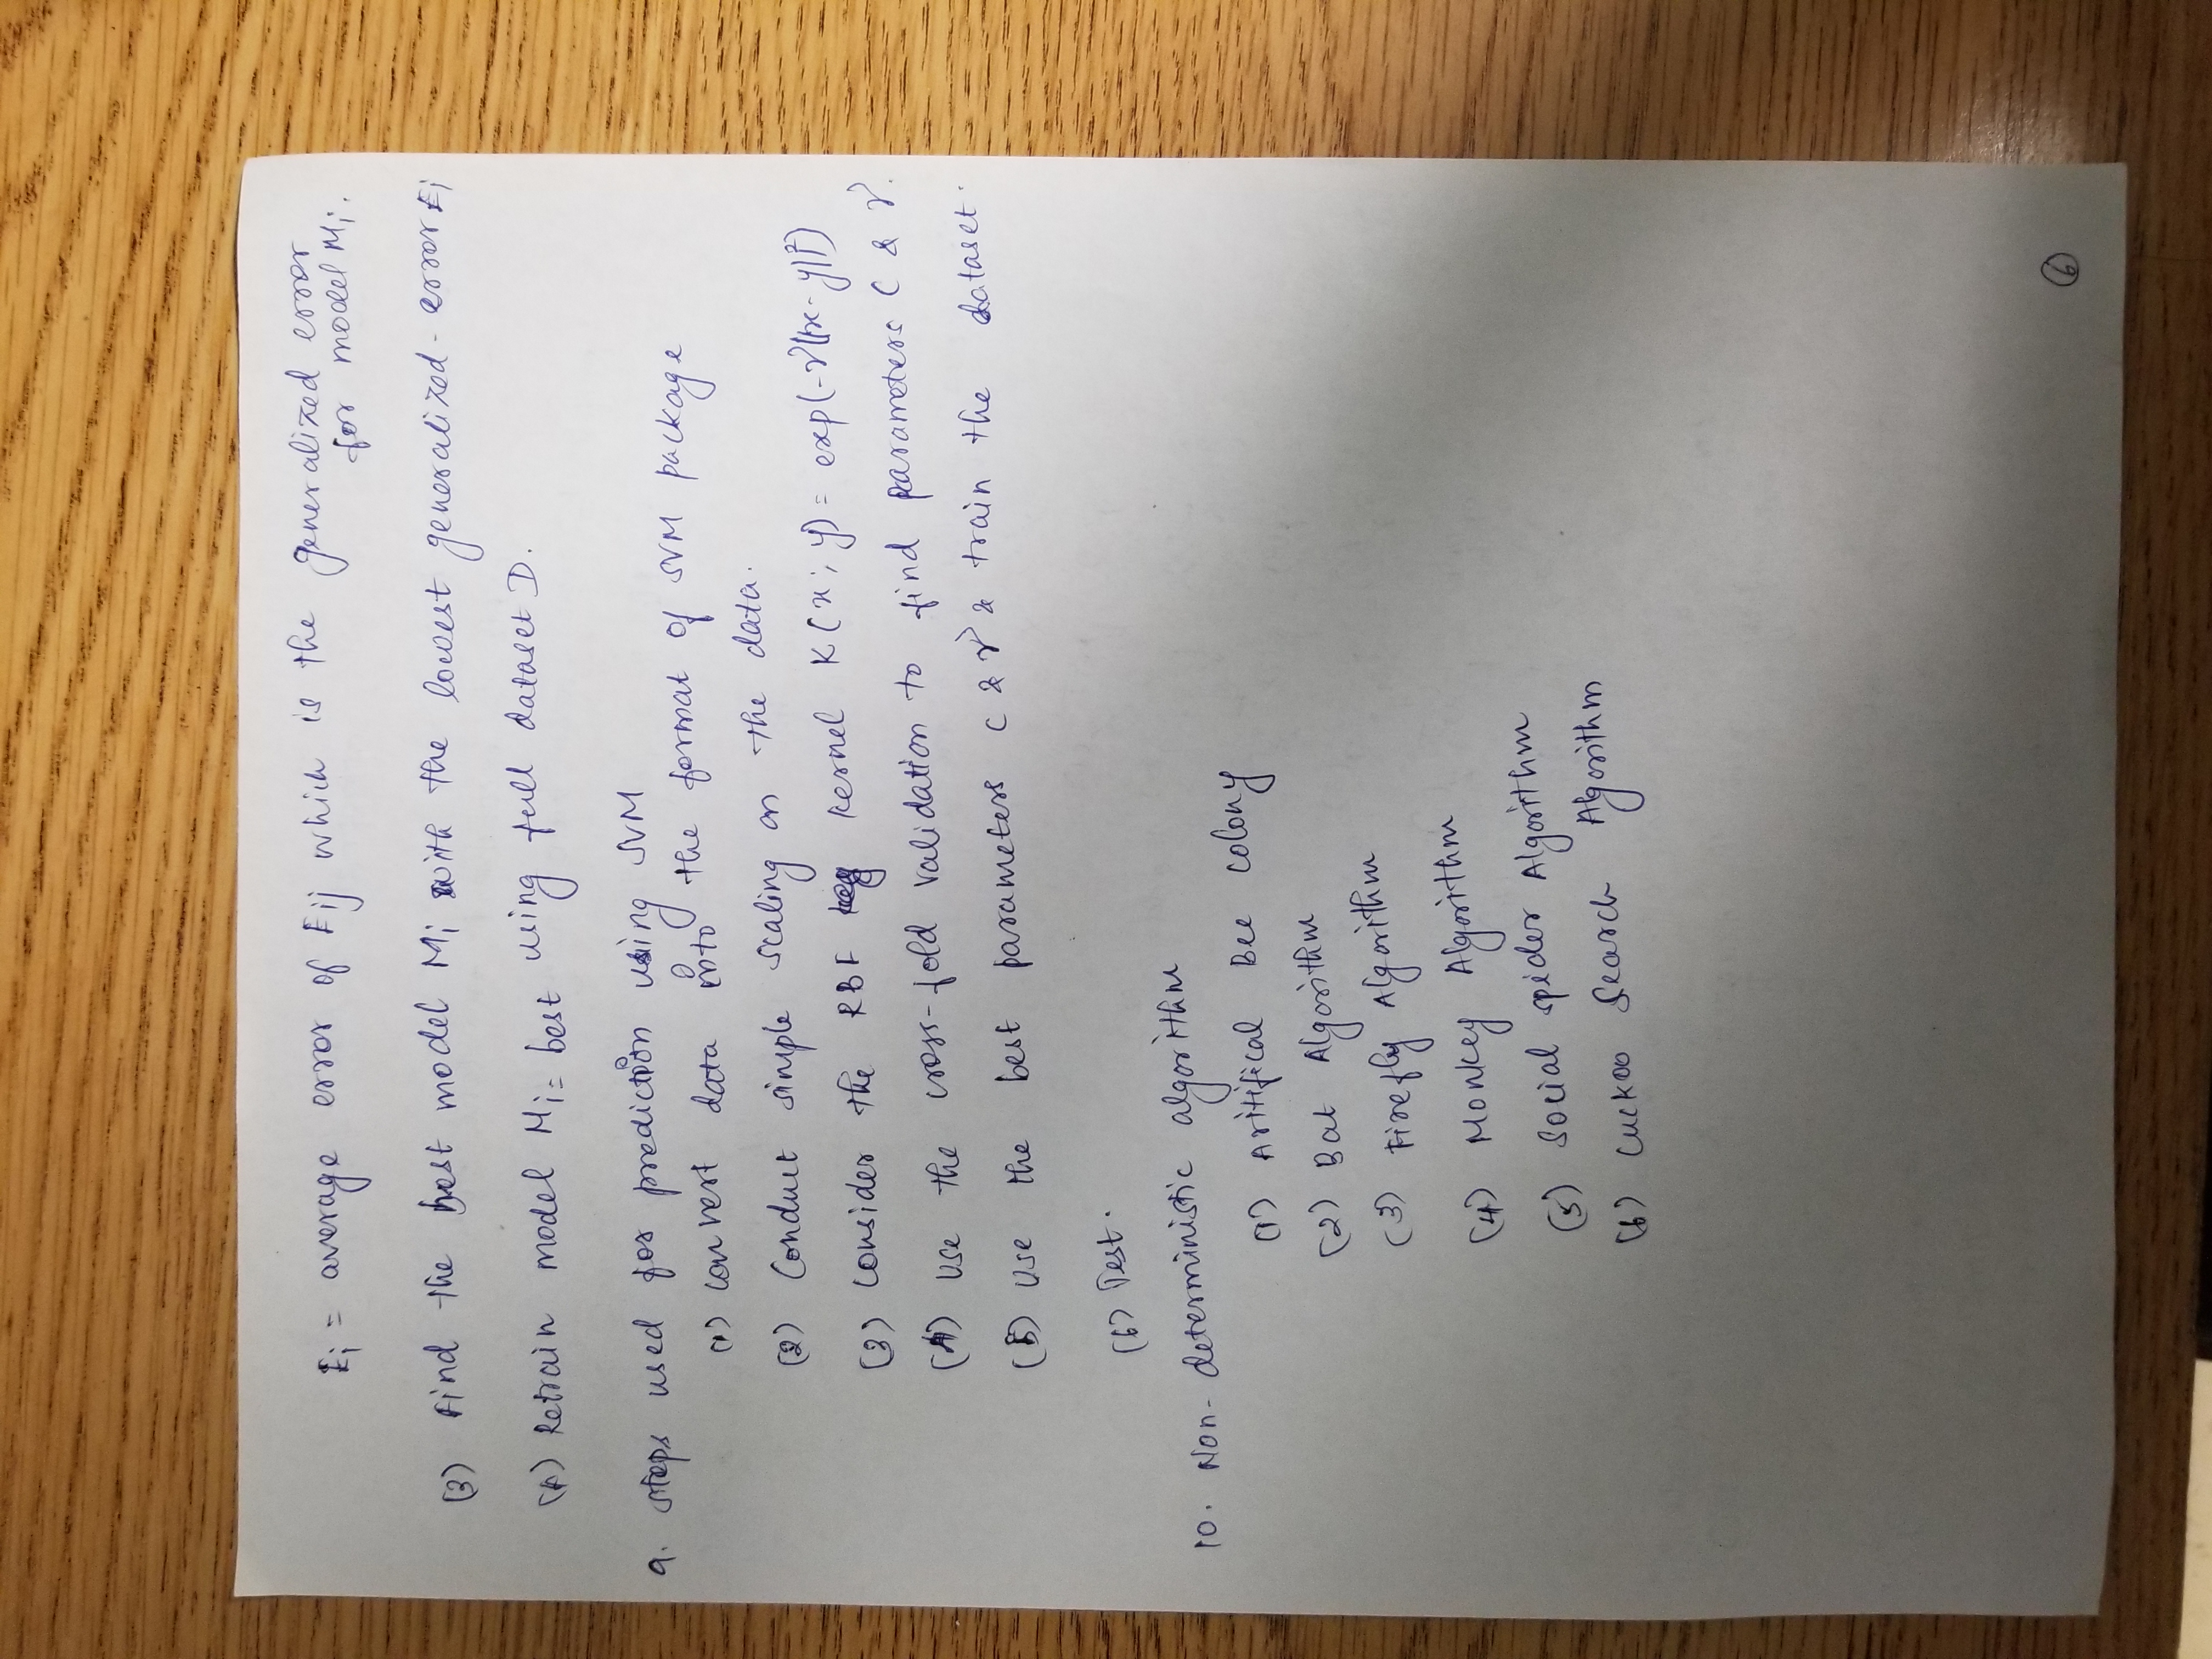 Ei = average error of Eij which is the generalized error
for model Mi.
(3) Find the best model Mi with the lowest generalized-error Ei
(4) Retrain model Mi=best using full dataset D.
9. Steps used for prediction using SVM
(1) Convert data into the format of SVM package
(2) Conduct simple scaling on the data.
(3) Consider the RBF kernel K(x; y) = exp(-γ||x-y||²)
(4) Use the cross-fold validation to find parameters C & γ.
(5) Use the best parameters C & γ & train the dataset.
(6) Test.
10. Non-deterministic algorithm
(1) Aritifical Bee colony
(2) Bat Algorithm
(3) Firefly Algorithm
(4) Monkey Algorithm
(5) Social spider Algorithm
(6) Cuckoo Search Algorithm
6